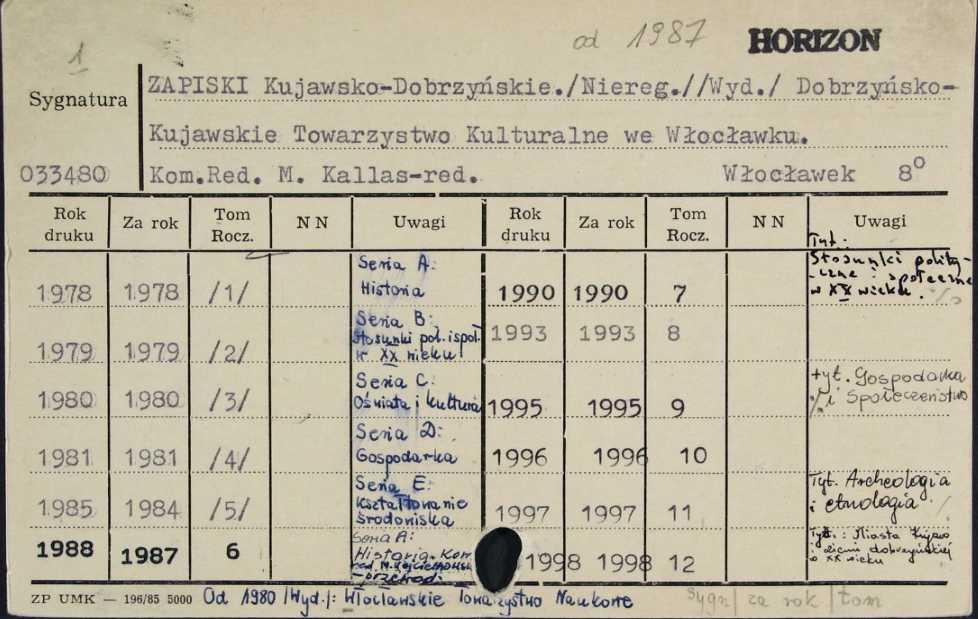 1
od 1987 HORIZON
Sygnatura
ZAPISKI Kujawsko-Dobrzyńskie./Niereg.//Wyd./ Dobrzyńsko-
Kujawskie Towarzystwo Kulturalne we Włocławku.
033480 Kom.Red. M. Kallas-red. Włocławek 8°
Rok druku Za rok Tom Rocz. N N Uwagi Rok druku Za rok Tom Rocz. N N Uwagi
1978 1978 /1/ Seria A: Historia 1990 1990 7 Tyt.: Stosunki polity-czne i społeczne w XX wieku.
1979 1979 /2/ Seria B: Stosunki pol. i społ. w XX wieku 1993 1993 8
1980 1980 /3/ Seria C: Oświata i kultura 1995 1995 9 tyt. Gospodarka i Społeczeństwo
1981 1981 /4/ Seria D: Gospodarka 1996 1996 10
1985 1984 /5/ Seria E: Kształtowanie środowiska 1997 1997 11 Tyt. Archeologia i etnologia
1988 1987 6 Seria A: Historia. Kom. red. 1998 1998 12 Tyt.: Miasta Kujaw i ziemi dobrzyńskiej w XX wieku
ZP UMK — 196/85 5000 Od 1980 /Wyd./: Włocławskie Towarzystwo Naukowe Sygn/ za rok / tom